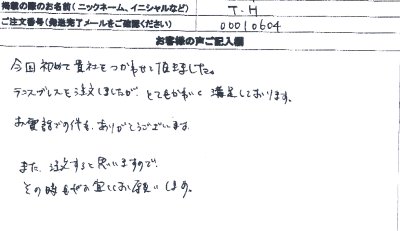 掲載の際のお名前(ニックネーム、イニシャルなど)
T.H
ご注文番号(発送完了メールをご確認ください)
00010604
お客様の声ご記入欄
今回初めて貴社をつかわせて頂きました。
テニスブレスを注文しましたが、とてもかわいく満足しております。
お電話での件も、ありがとうございます。
また、注文すると思いますので、
その時もぜひ宜しくお願いします。